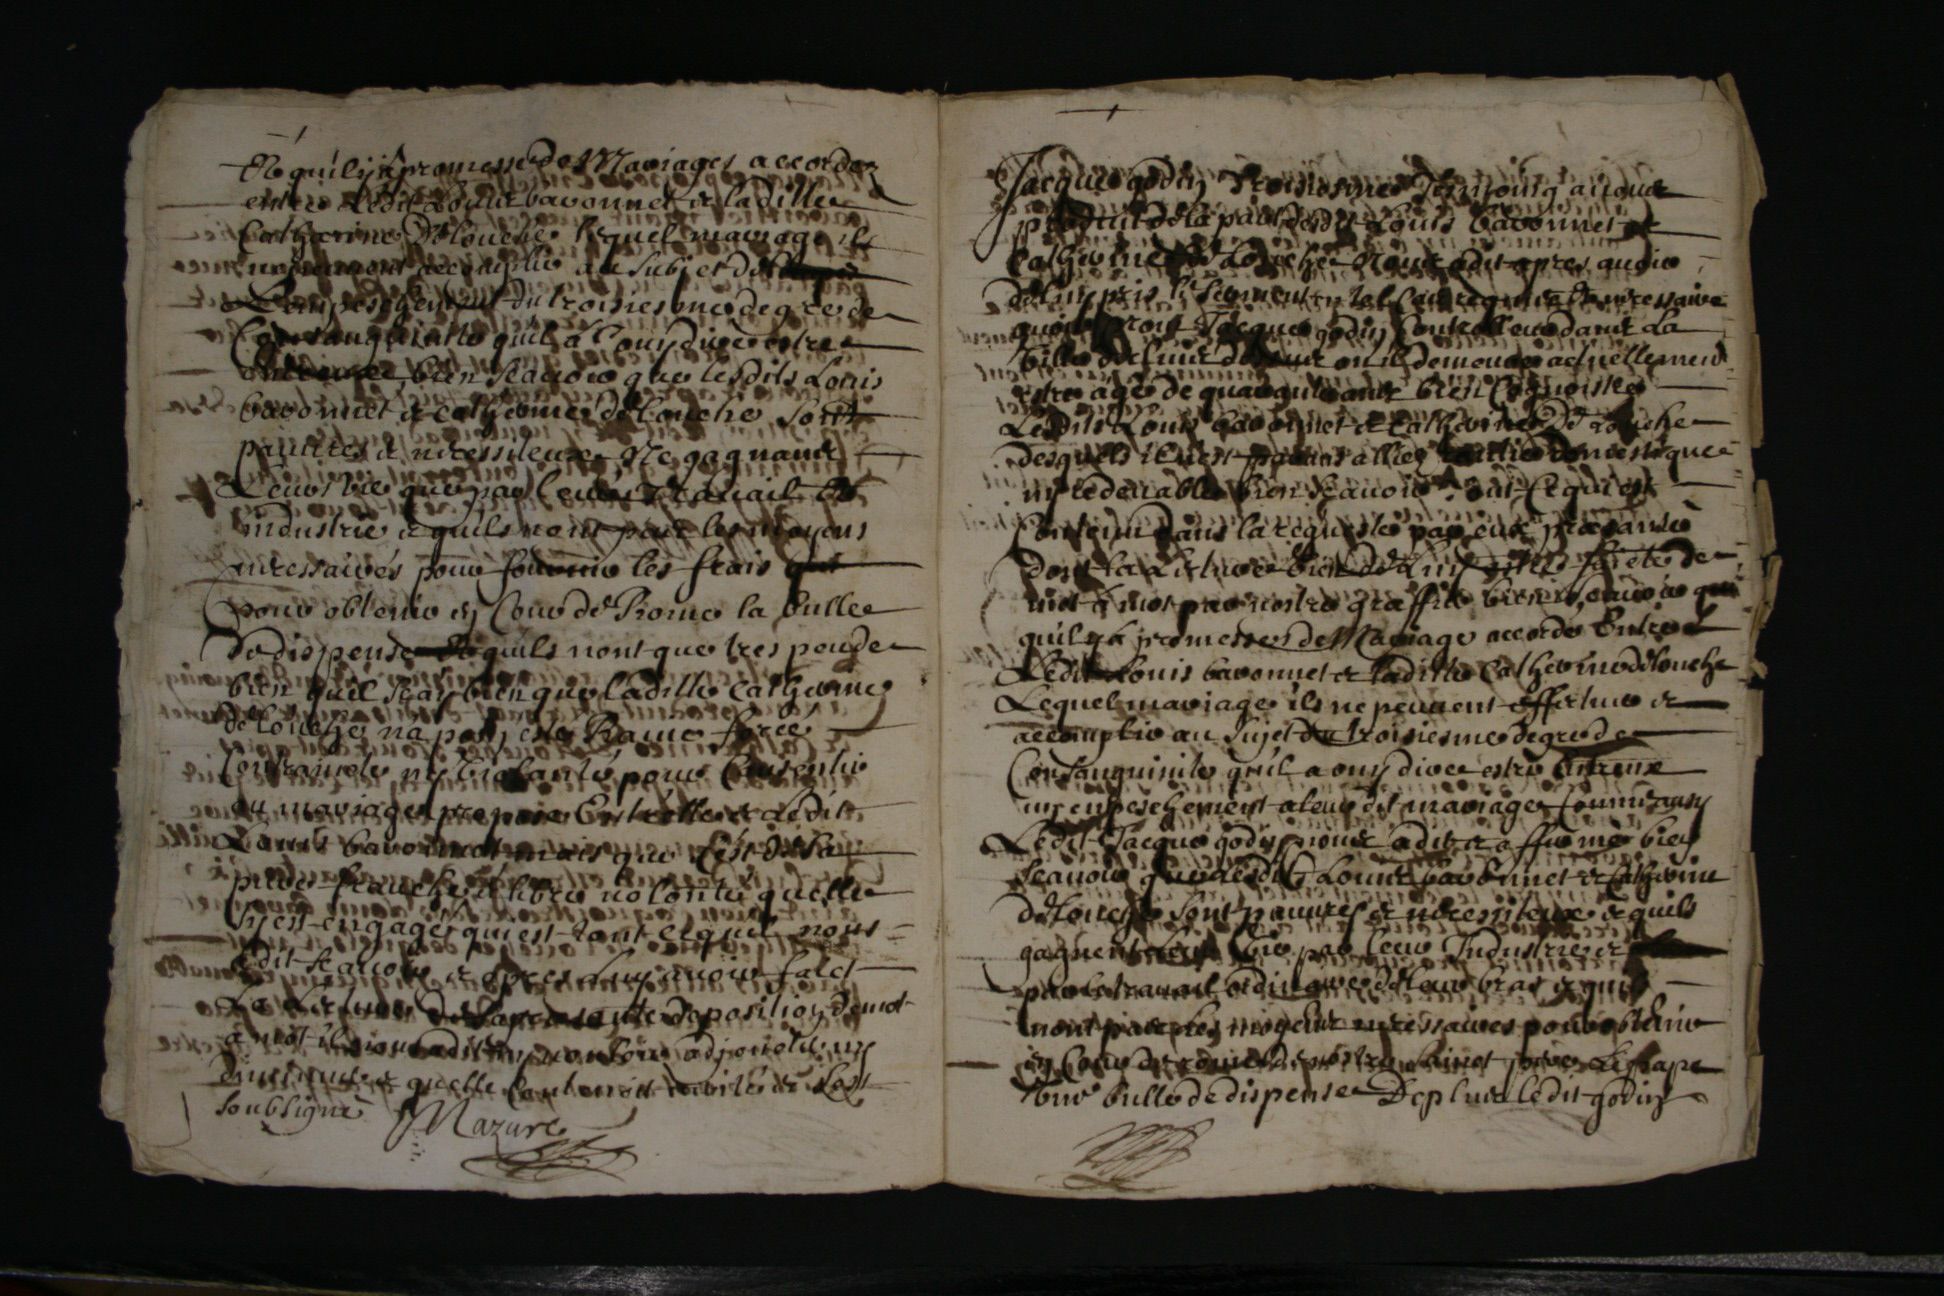 Et quil y a promesse de Mariages accordez
entre Ledit Louis bavonnet et laditte
Catherine Delouche lequel mariage ils
accomplir au subjet de
Lempeschement du troiziesme degre de
Consanguinitte quil a ouy dire estre
bien scavoir que lesdits Louis
bavonnet et catherine Delouche sont
pauures et necessiteux Ne gagnants
Leurs vie que par Leurs trauail et
industrie et quils nont pas les moyens
necessaires pour fournir les frais
pour obtenir en Cour de Rome la bulle
de dispense Et quils nont que tres peu de
bien quil scay bien que laditte Catherine
delouche na point este Rauie forcée
Contrainte ny violantée pour Consentir
au mariage propose Entrelle et Ledit
Louis bavonnet mais que Cest de sa
pure franche et libre uolonté quelle
sy est engagée qui est tout ce quil nous
a dit scauoir et apres luy auoir faict
La Lecture de la presente deposition de mot
à mot il nous a dit ny uouloir adjouter ny
diminuer et quelle Contenoit verité et sest
soubsigné Mazure
Jacques godin troisiesme Tesmoing a nous
produit de la part desdit Louis bavonnet et
Catherine de Louche Nous a dit apres auoir
de luy pris le serment en tel cas requis et necessaire
Jacques godin Controlleur dans la
ville de ou il demeure actuellement
estre agé de quarante ans bien Cognoistre
Lesdits Louis bavonnet et Catherine De Louche
desquels il nest parent allier domestique
ny redeuable bien scauoir Ce qui est
Contenu dans la requeste par eux presantée
dont la Lecture a esté faicte de
mot à mot par nostre graffier bien scauoir
quil y a promesses de Mariage accordé Entre
Ledit Louis bavonnet et laditte Catherine delouche
Lequel mariage ils ne peuuent effectuer et
accomplir au sujet du troisiesme degre de
Consanguinité quil a ouy dire estre Entreux
ny empeschement a leur dit mariage Comme aussy
Ledit Jacque godin nous a dit et affirmé bien
scauoir que lesdits Louis bavonnet et Catherine
delouche sont pauures et necessiteux et quils
gagnent leur vie par leur Industrie et
par le trauail ordinaire de leur bras et quils
nont pas les moyens necessaires pour obtenir
en Cour de rome de nostre sainct pere Le pape
une bulle de dispense De plus ledit godin